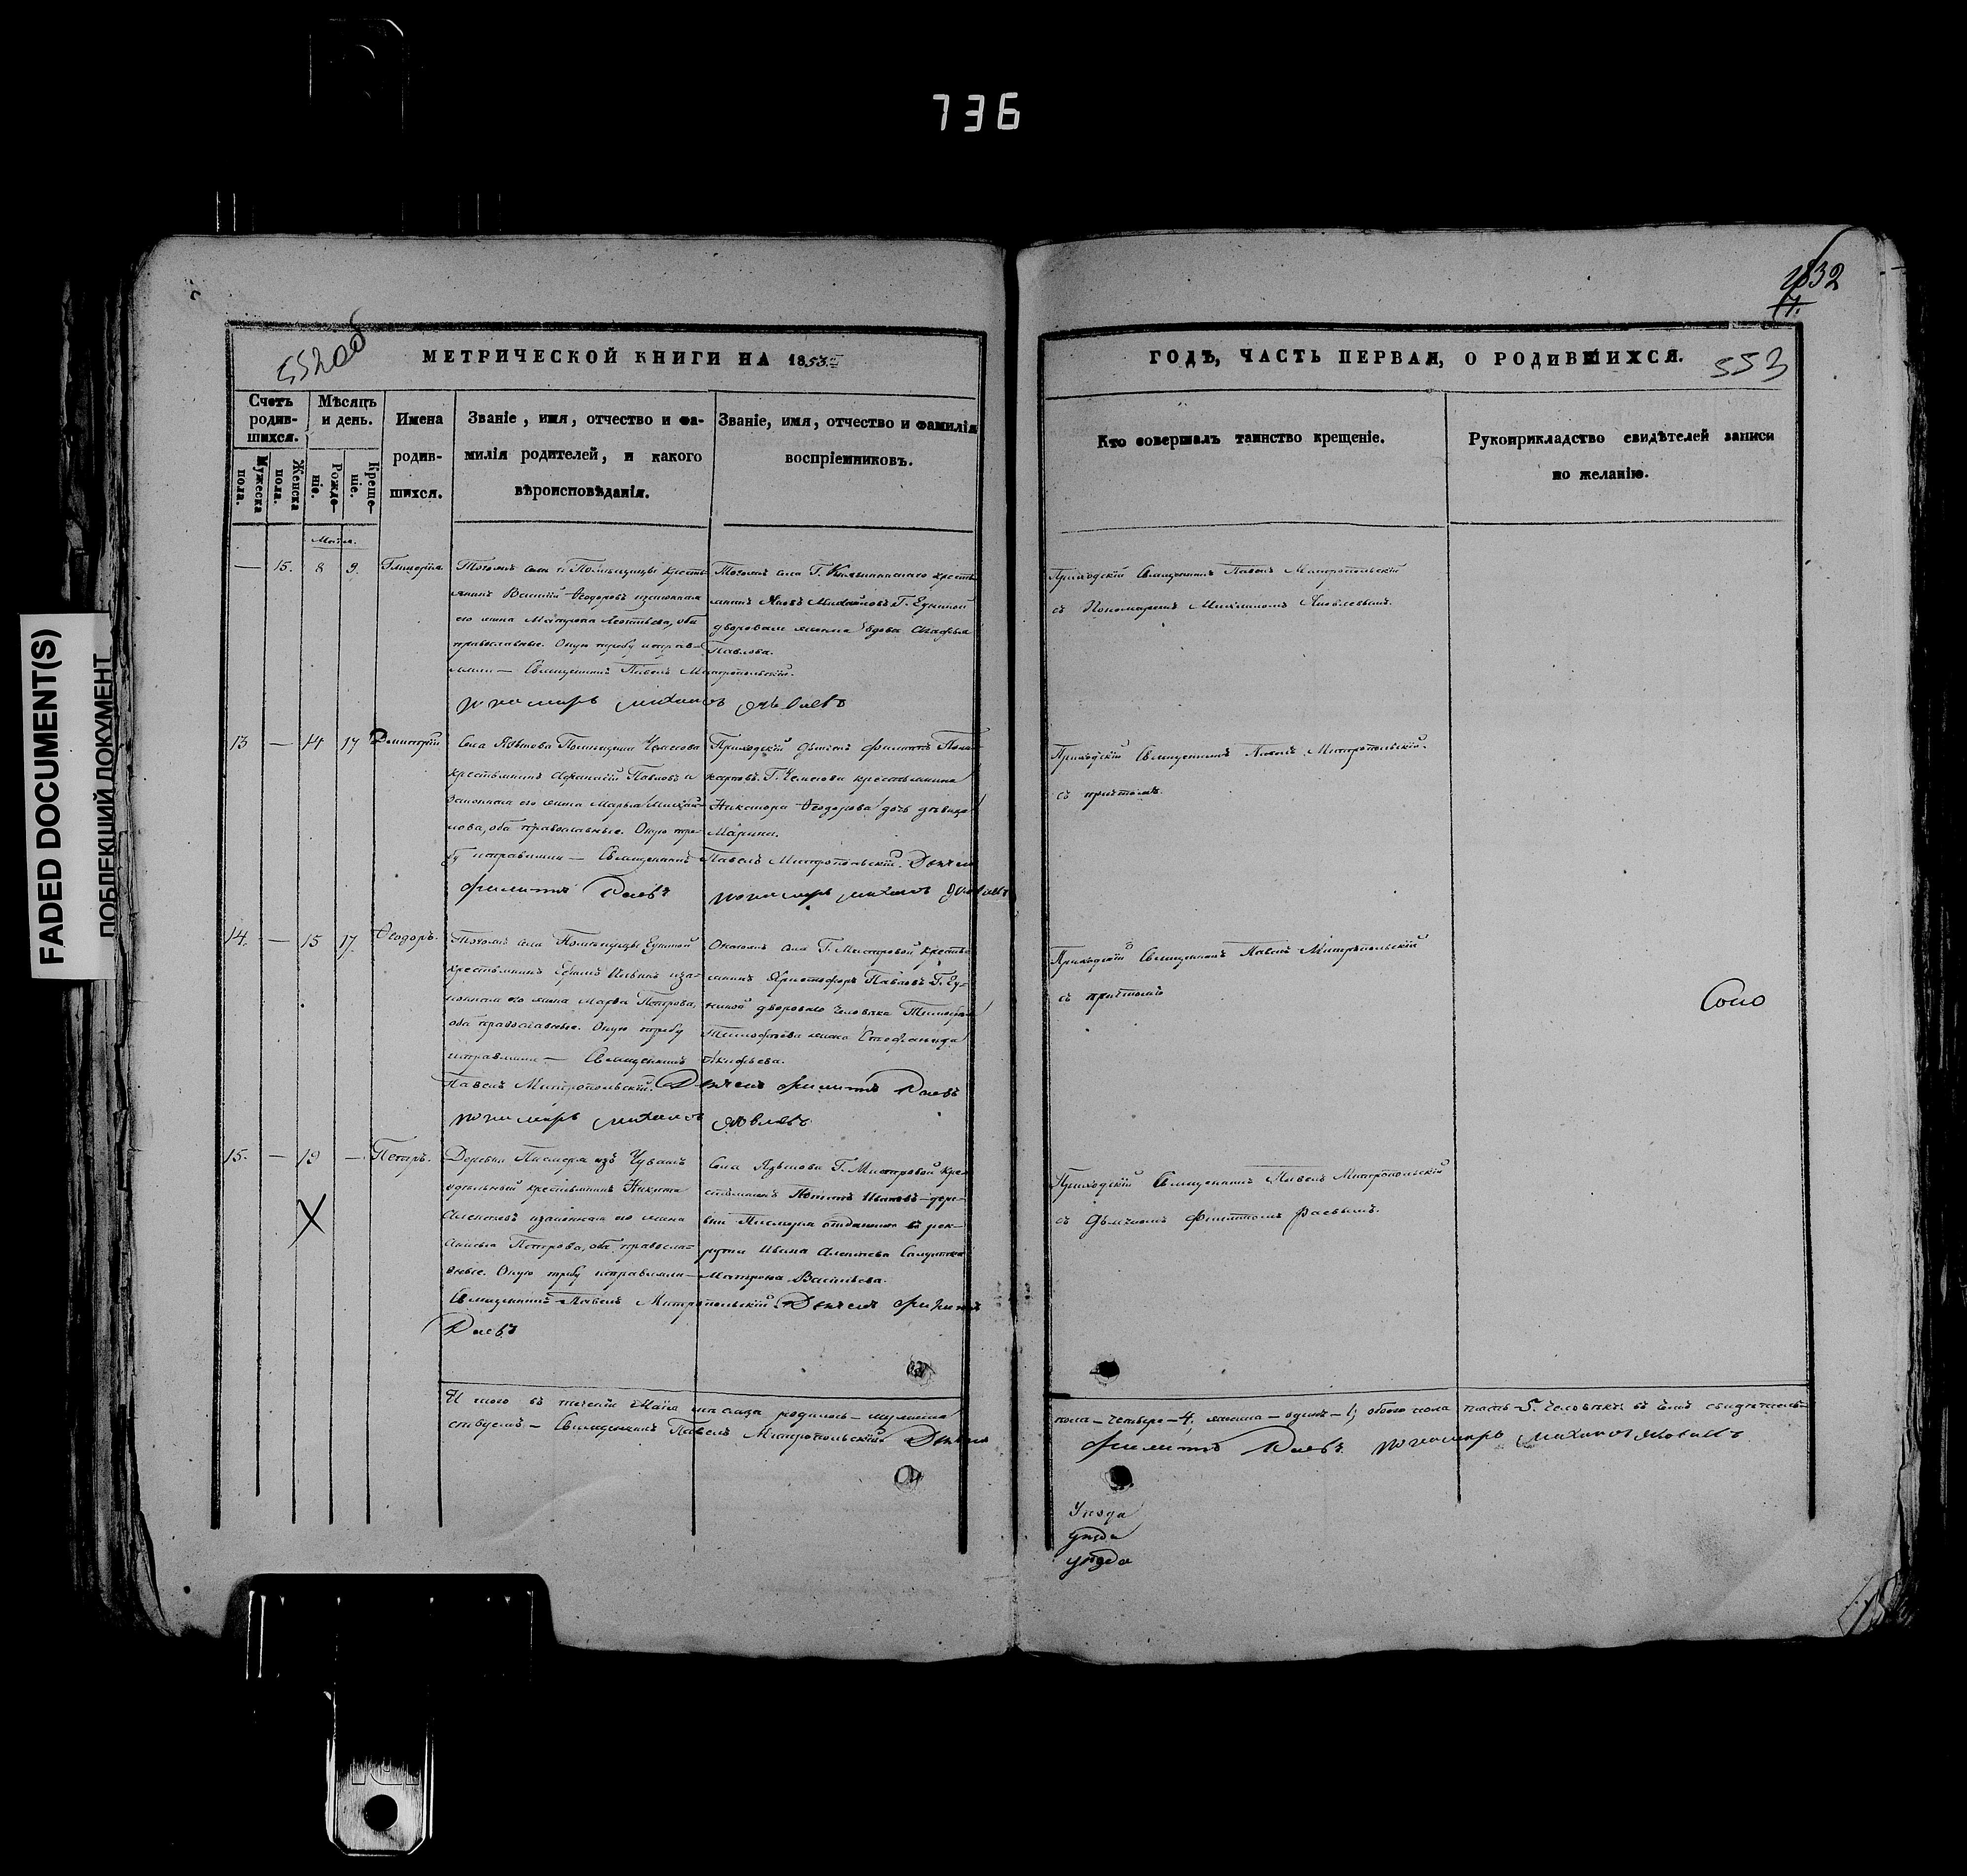 736
FADED DOCUMENT(S)
ПОБЛЕКШИЙ ДОКУМЕНТ
552 об
МЕТРИЧЕСКОЙ КНИГИ НА 1853
Счетъ родив-шихся.
Мужеска пола.
Женска пола.
Мѣсяцъ и день.
Рожде-ніе.
Креще-ніе.
Имена
родив-
шихся.
Званіе, имя, отчество и фа-
милія родителей, и какого
вѣроисповѣданія.
Званіе, имя, отчество и фамилія
воспріемниковъ.
Маія.
— 15. 8 9. Гликерія
Тогожъ села Помѣщицы кресть-
янинъ Василій Ѳеодоровъ и законная
его жена Матрона Леонтьева, оба
православные. Оную требу исправ-
ляли — Священникъ Павелъ Митропольскій.
Тогожъ села Г. кресть-
янинъ Яковъ Михайловъ Г.
дворовая женка вдова
Павлова.
пономарь михаилъ яковлевъ
13 — 14 17 Димитрій
Села Языкова Помѣщика Чемесова
крестьянинъ Афанасій Павловъ и
законная его жена Марья Михай-
лова, оба православные. Оную тре-
бу исправляли — Священникъ Павелъ Митропольскій. Дьячекъ
филиппъ Раевъ пономарь михаилъ яковлевъ
Приходскій дьячекъ филиппъ
Г. Чемесова крестьянина
Никанора Ѳеодорова дочь дѣвица
Марина.
14. — 15 17. Ѳеодоръ.
Тогожъ села Помѣщицы
крестьянинъ Ефимъ Ильинъ и за-
конная его жена Марѳа Петрова,
оба православные. Оную требу
исправляли — Священникъ
Павелъ Митропольскій. Дьячекъ филиппъ Раевъ
пономарь михаилъ яковлевъ
села Г. кресть-
янинъ Христофоръ Павловъ Г.
дворового человѣка
Тимофеева жена Стефанида
15. — 19 — Петръ.
Деревни Писмера изъ Чувашъ
удѣльный крестьянинъ Никита
Алексѣевъ и законная его жена
Петрова, оба правосла-
вные. Оную требу исправляли —
Священникъ Павелъ Митропольскій. Дьячекъ филиппъ
Раевъ
Села Языкова Г. кре-
стьянинъ Ивановъ — дере-
вни Писмера отданного въ рек-
руты Ивана Алексѣева Солдатка
Матрона Васильева.
И того въ теченіи Маія мѣсяца родилось — мужеска
ствуемъ — Священникъ Павелъ Митропольскій. Дьячекъ
832
17.
ГОДЪ, ЧАСТЬ ПЕРВАЯ, О РОДИВШИХСЯ.
553
Кто совершалъ таинство крещеніе.
Рукоприкладство свидѣтелей записи
по желанію.
Приходскій Священникъ Павелъ Митропольскій
съ Пономаремъ Михаиломъ Яковлевымъ.
Приходскій Священникъ Павелъ Митропольскій
съ причтомъ.
Приходскій Священникъ Павелъ Митропольскій
съ причтомъ
Приходскій Священникъ Павелъ Митропольскій
съ Дьячкомъ Филиппомъ Раевымъ.
пола — четверо — 4, женска — одинъ — 1; обоего пола пять 5. человѣкъ. въ чемъ свидѣтель-
филиппъ Раевъ пономарь михаилъ яковлевъ
Уѣзда
уѣзда
уѣзда